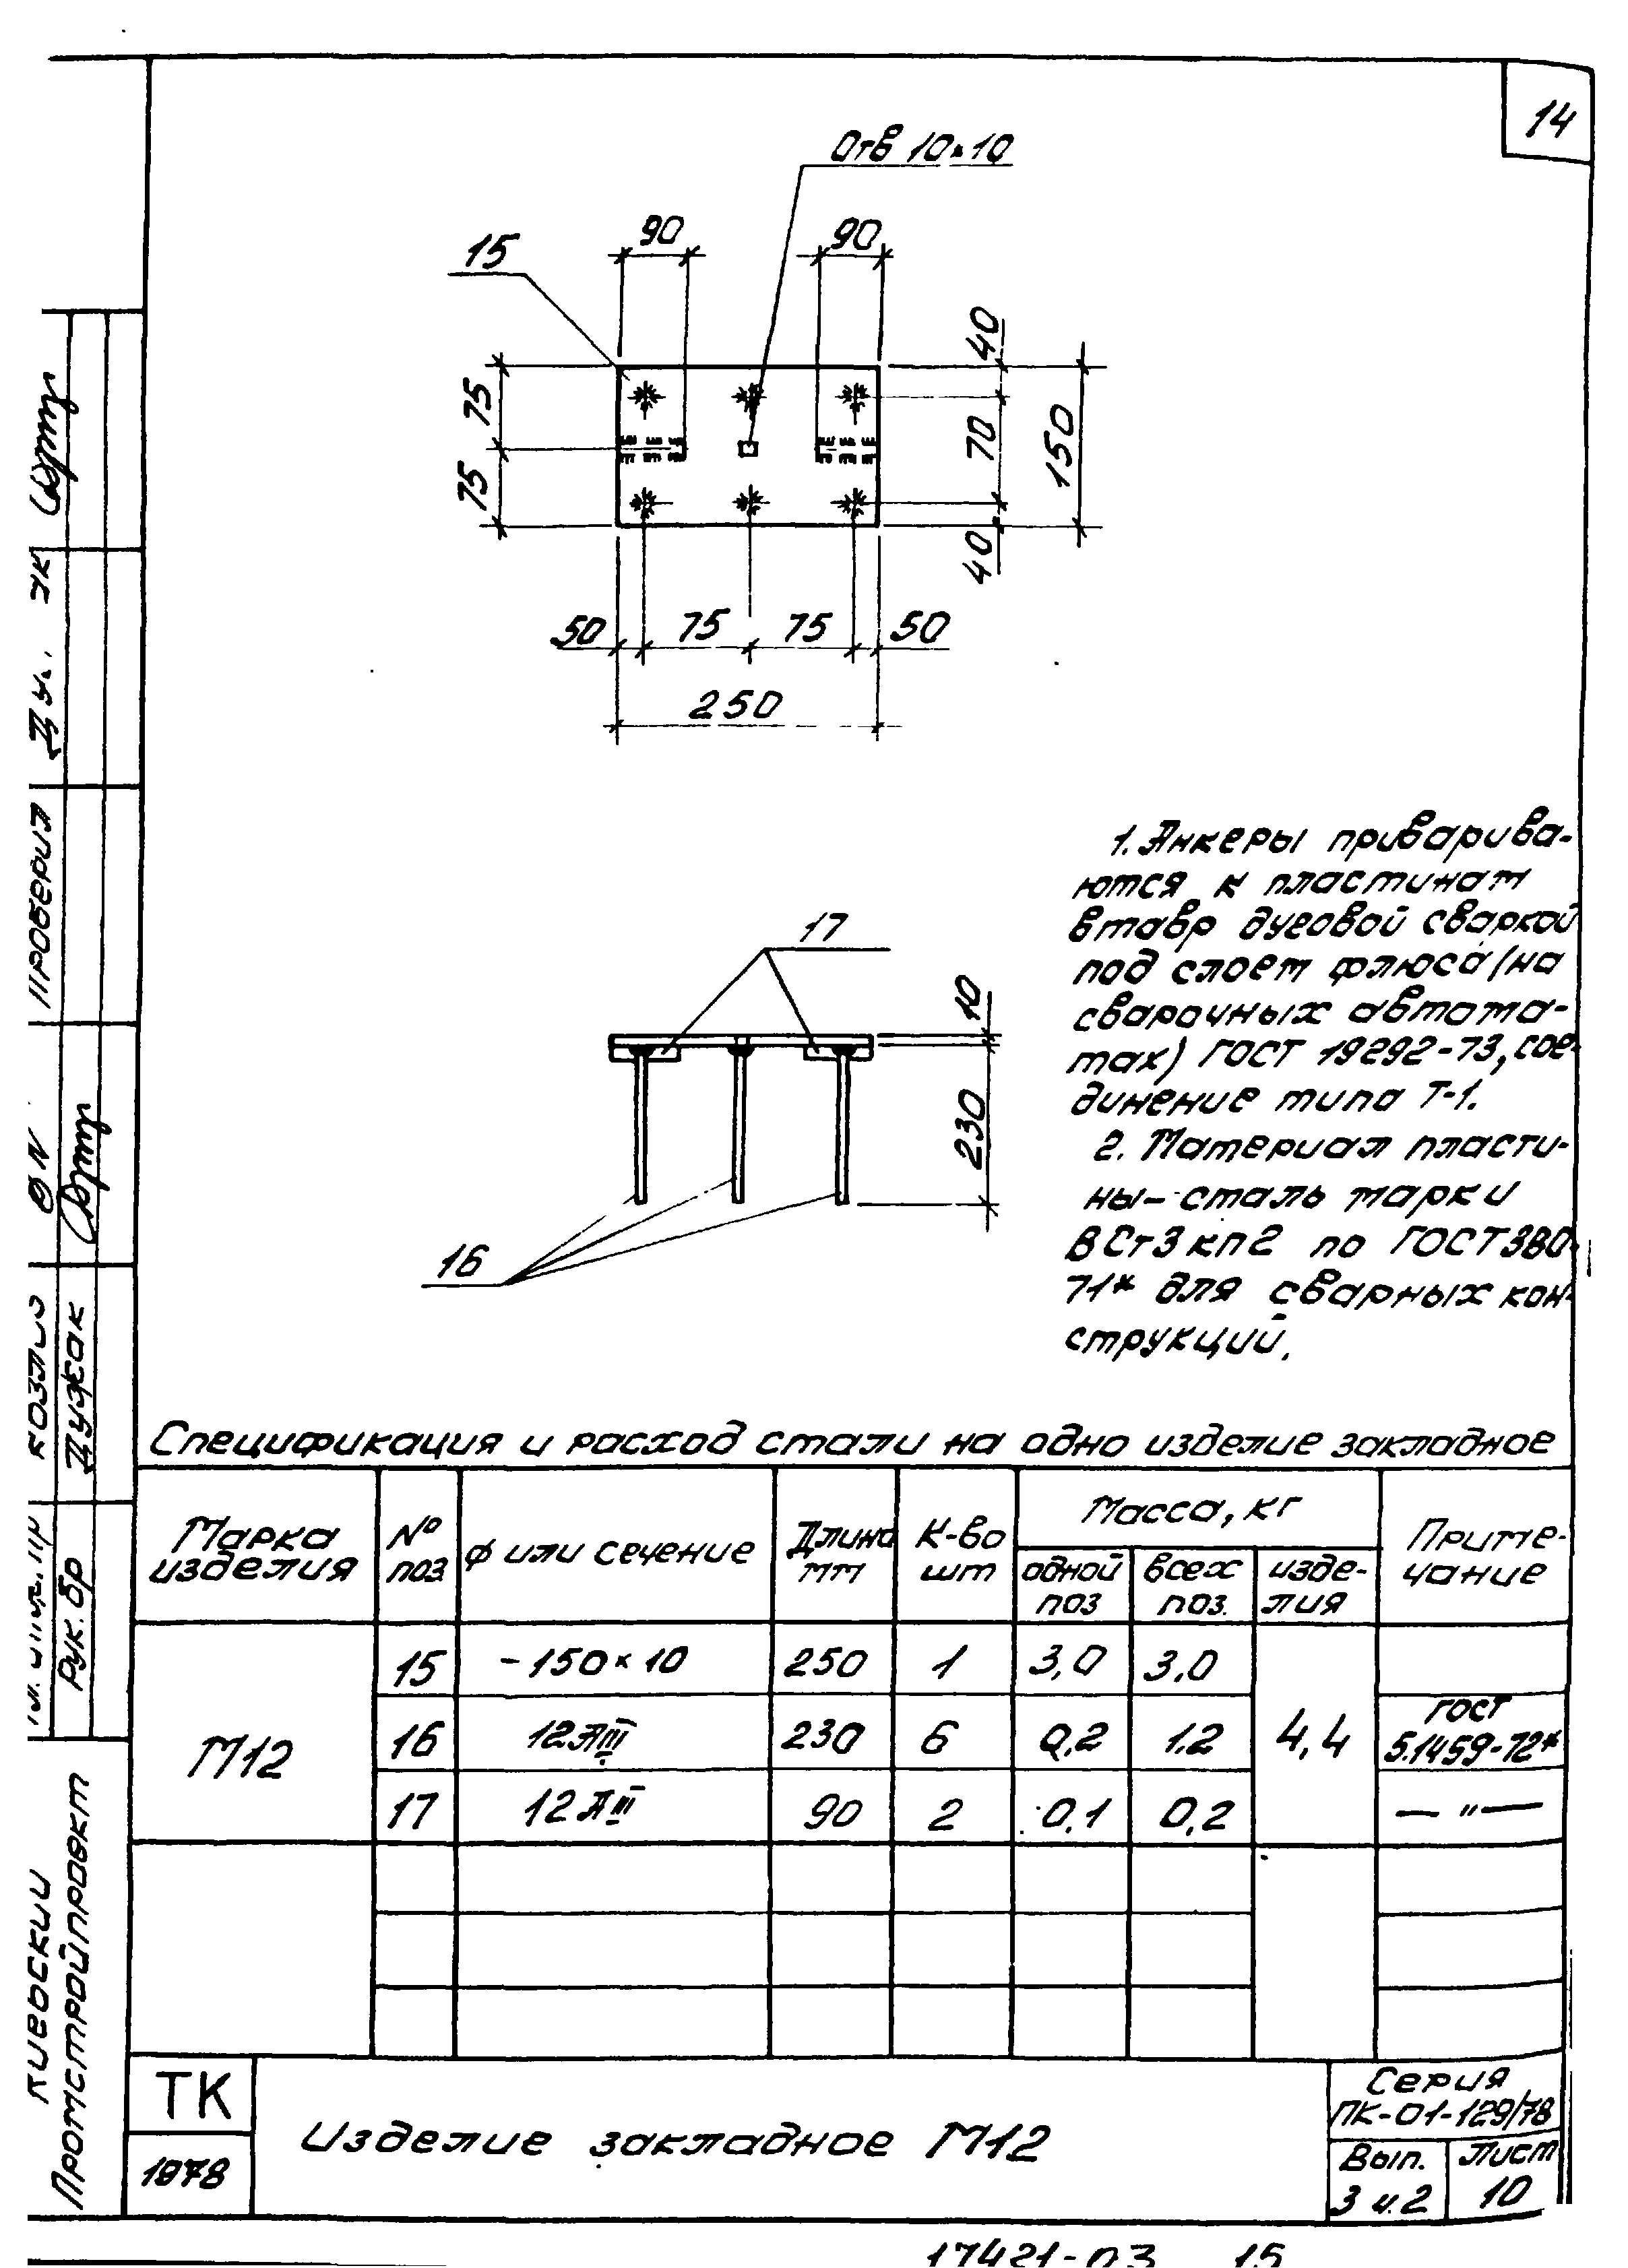 14
Отв 10×10
90
90
15
40
75
70
150
75
40
50
75
75
50
250
1. Анкеры приварива-
ются к пластинам
втавр дуговой сваркой
под слоем флюса (на
сварочных автома-
тах) ГОСТ 19292-73, сое-
динение типа Т-1.
2. Материал пласти-
ны-сталь марки
ВСт3кп2 по ГОСТ 380-
71* для сварных кон-
струкций.
17
10
230
16
Спецификация и расход стали на одно изделие закладное
Марка изделия | № поз | ф или сечение | Длина мм | К-во шт | Масса, кг | Приме-чание
одной поз | всех поз. | изде-лия
М12
15 | -150×10 | 250 | 1 | 3,0 | 3.0
16 | 12АIII | 230 | 6 | 0,2 | 1.2 | 4,4 | ГОСТ 5.1459-72*
17 | 12АIII | 90 | 2 | 0,1 | 0,2 | — " —
ТК
1978
Изделие закладное М12
Серия
ПК-01-129/78
Вып. Лист
3 ч.2 10
17421-03 15
Проверил
Дужак
Рук. бр
Киевский
Промстройпроект